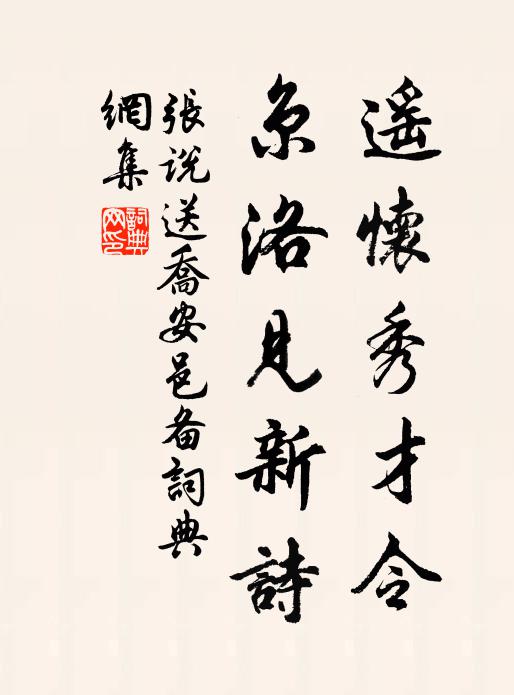 遥懷秀才令
京洛見新詩
張説送喬安邑备詞典
網集
詞典網印